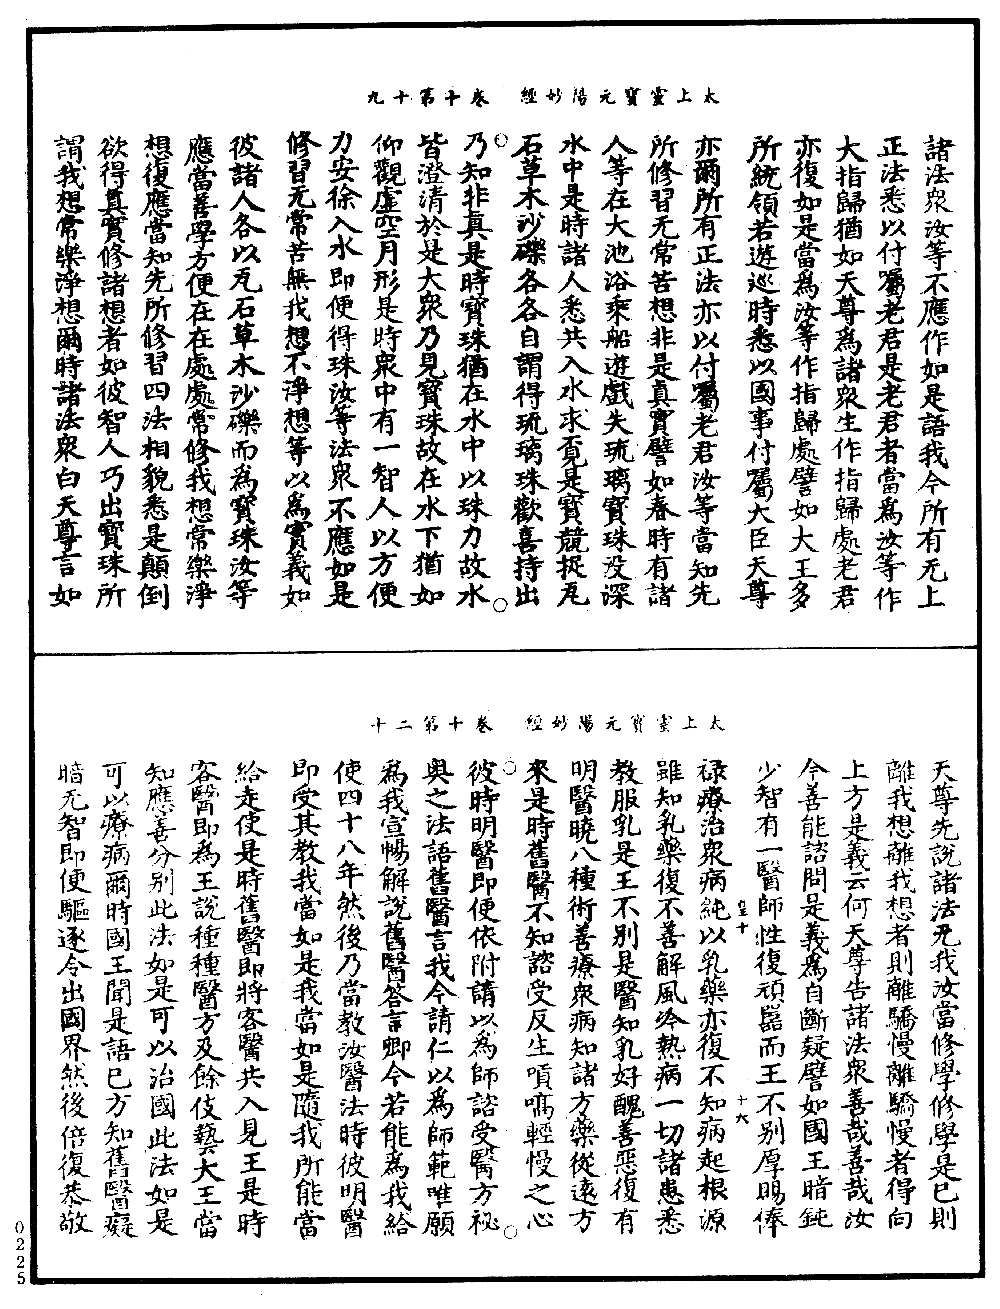 太上靈寶元陽妙經　卷十第十九
諸法衆汝等不應作如是語我今所有无上
正法悉以付屬老君是老君者當爲汝等作
大指歸猶如天尊爲諸衆生作指歸處老君
亦復如是當爲汝等作指歸處譬如大王多
所統領若遊巡時悉以國事付屬大臣天尊
亦爾所有正法亦以付屬老君汝等當知先
所修習无常苦想非是真實譬如春時有諸
人等在大池浴乘船遊戲失琉璃寶珠没深
水中是時諸人悉共入水求覓是寶競捉瓦
石草木沙礫各各自謂得琉璃珠歡喜持出
乃知非真是時寶珠猶在水中以珠力故水
皆澄清於是大衆乃見寶珠故在水下猶如
仰觀虛空月形是時衆中有一智人以方便
力安徐入水即便得珠汝等法衆不應如是
修習无常苦無我想不淨想等以爲實義如
彼諸人各以瓦石草木沙礫而爲寶珠汝等
應當善學方便在在處處常修我想常樂淨
想復應當知先所修習四法相貌悉是顛倒
欲得真實修諸想者如彼智人巧出寶珠所
謂我想常樂淨想爾時諸法衆白天尊言如
太上靈寶元陽妙經　卷十第二十
天尊先說諸法无我汝當修學修學是已則
離我想離我想者則離驕慢離驕慢者得向
上方是義云何天尊告諸法衆善哉善哉汝
今善能諮問是義爲自斷疑譬如國王暗鈍
少智有一醫師性復頑嚚而王不別厚賜俸
皇十　十六
祿療治衆病純以乳藥亦復不知病起根源
雖知乳藥復不善解風冷熱病一切諸患悉
教服乳是王不別是醫知乳好醜善惡復有
明醫曉八種術善療衆病知諸方藥從遠方
來是時舊醫不知諮受反生嗔嗎輕慢之心
彼時明醫即便依附請以爲師諮受醫方祕
奥之法語舊醫言我今請仁以爲師範唯願
爲我宣暢解說舊醫答言卿今若能爲我給
使四十八年然後乃當教汝醫法時彼明醫
即受其教我當如是我當如是隨我所能當
給走使是時舊醫即將客醫共入見王是時
客醫即爲王說種種醫方及餘伎藝大王當
知應善分別此法如是可以治國此法如是
可以療病爾時國王聞是語已方知舊醫癡
暗无智即便驅逐令出國界然後倍復恭敬
0225